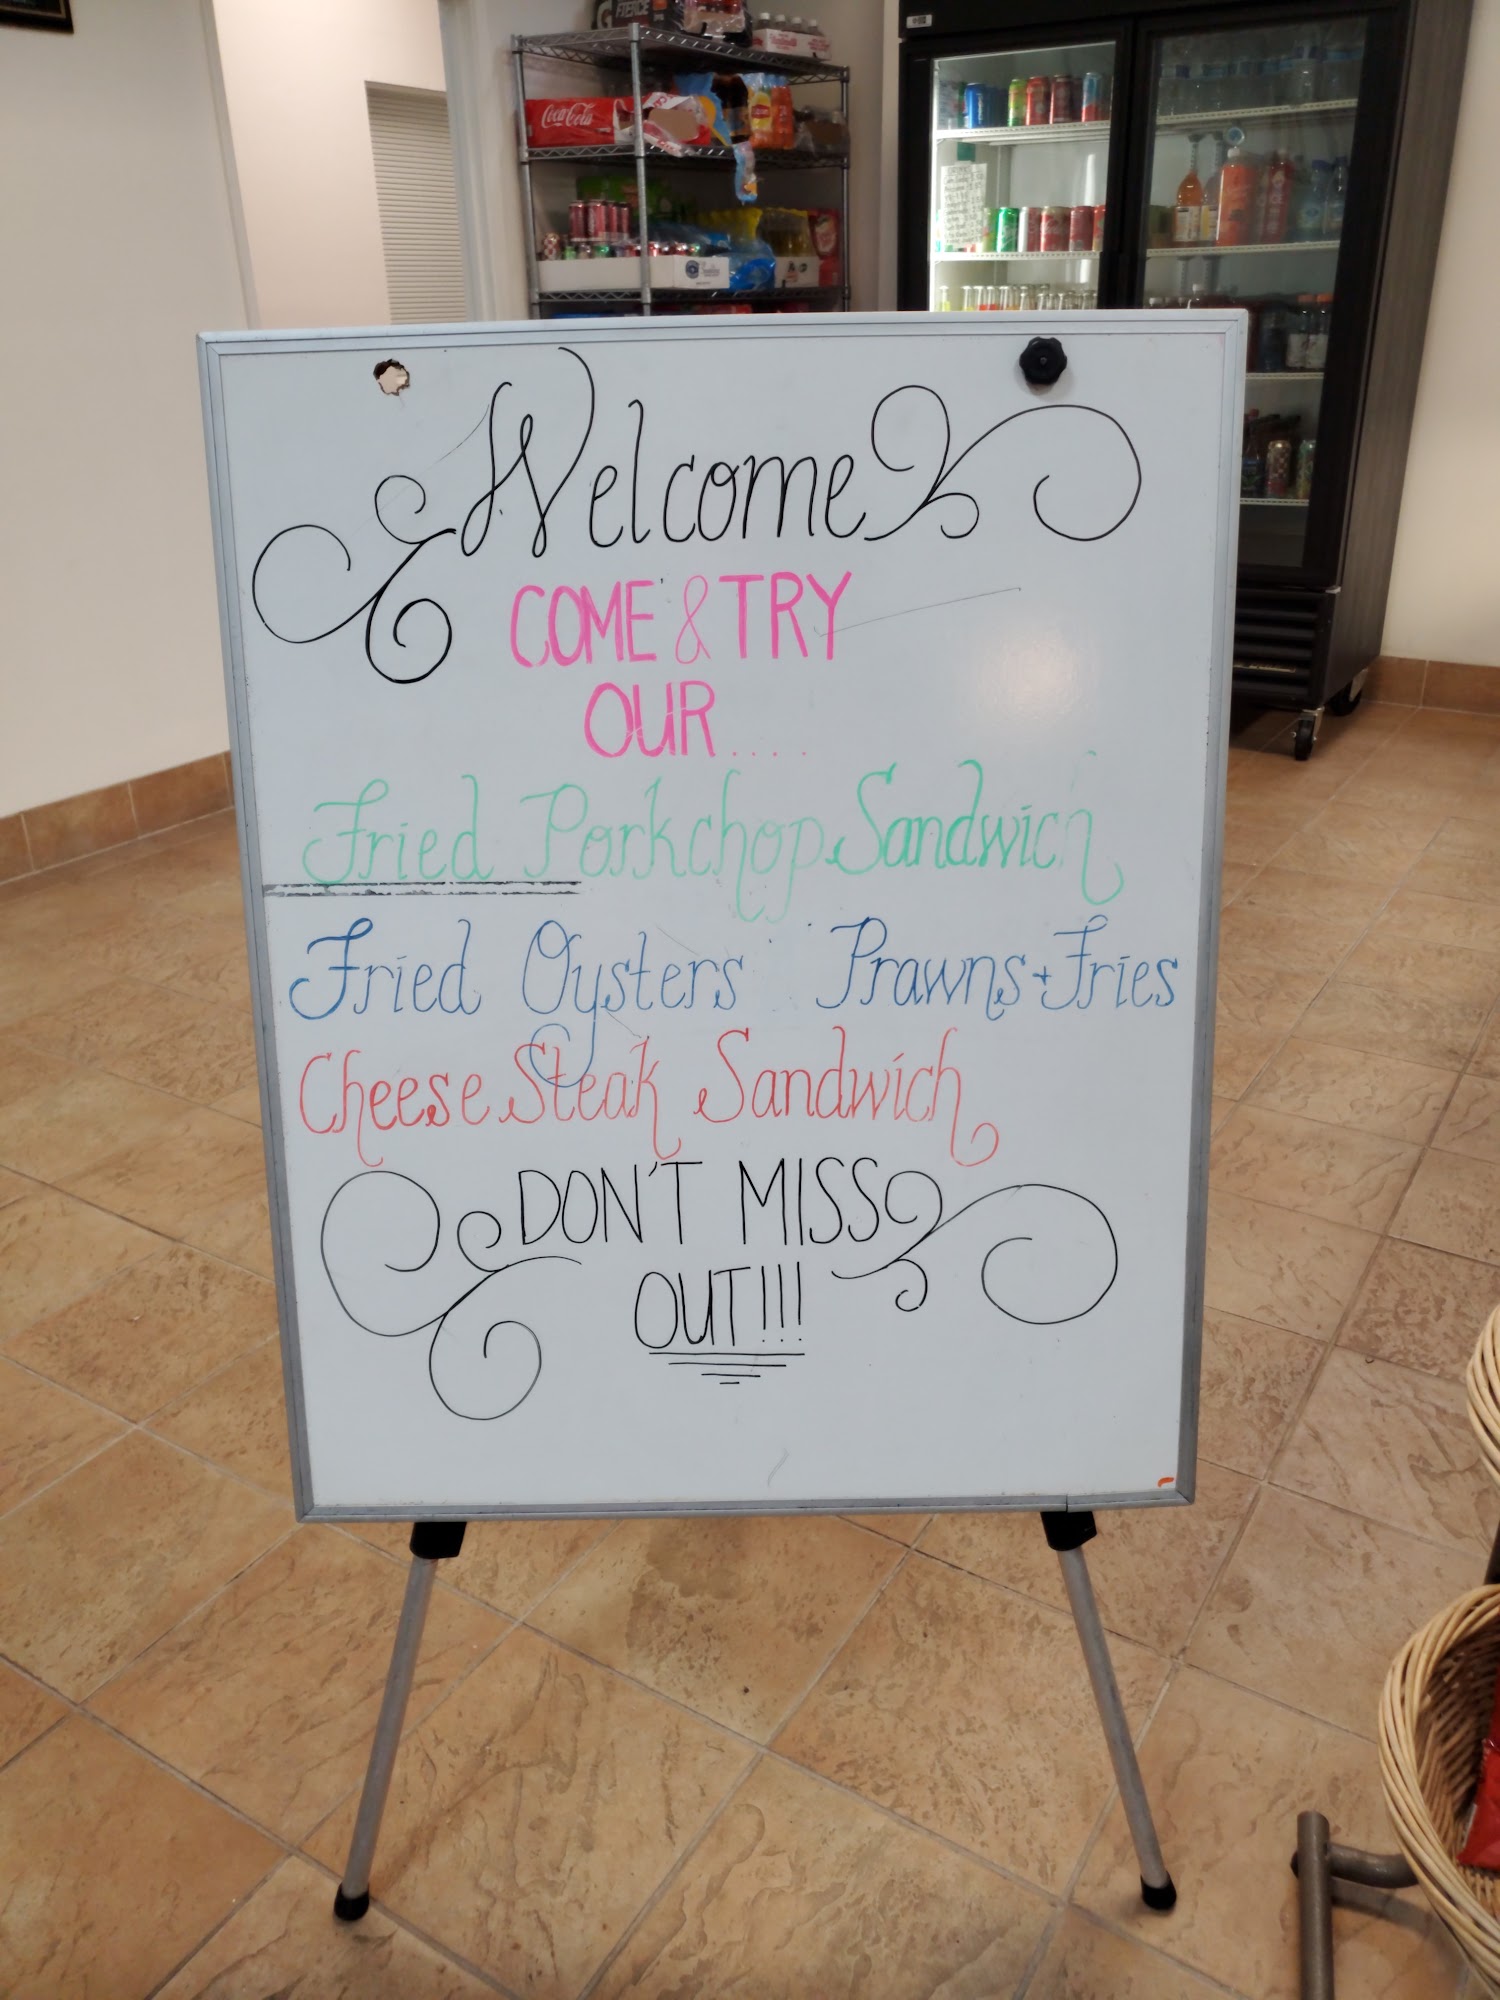 FIERCE
Coca-Cola
Welcome
COME & TRY
OUR....
Fried Porkchop Sandwich
Fried Oysters Prawns + Fries
Cheese Steak Sandwich
DON'T MISS
OUT!!!